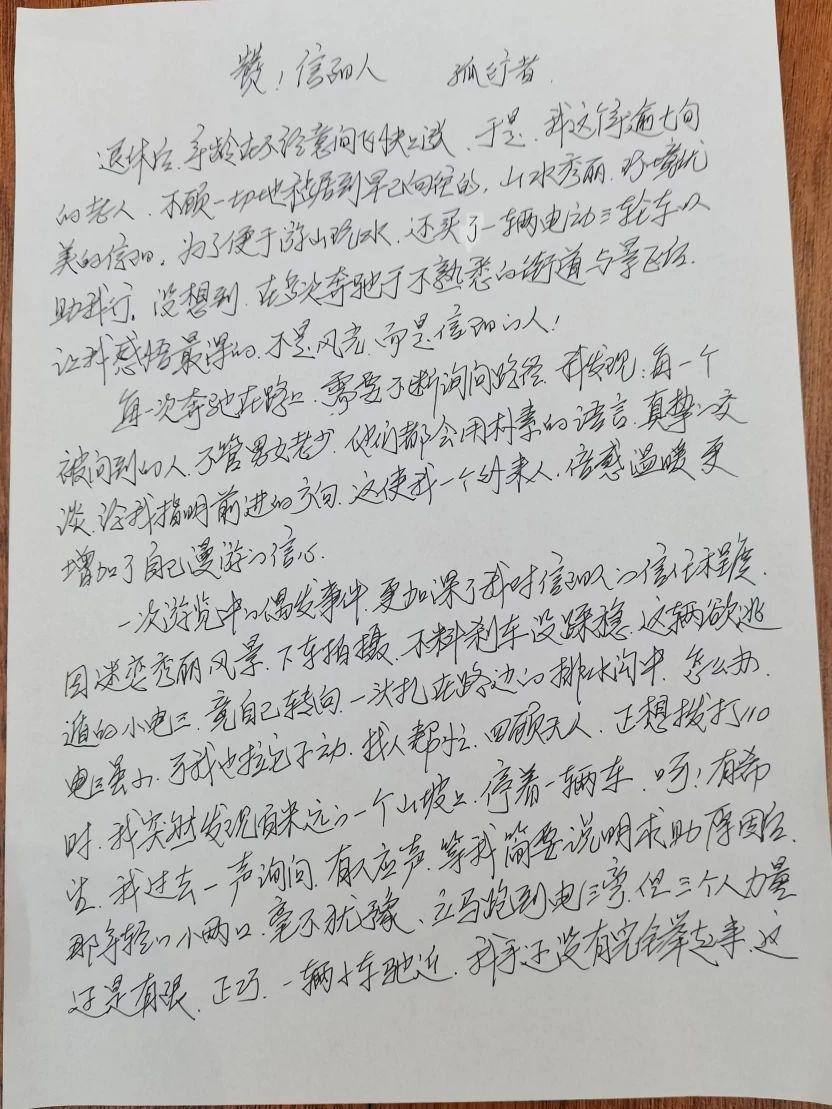 赞！信阳人 孤行者.
退休后.年龄在不经意间飞快上涨.于是.我这个年逾七旬
的老人.不顾一切地移居到早已向往的.山水秀丽.环境优
美的信阳。为了便于游山玩水.还买了一辆电动三轮车以
助我行。没想到.在多次奔驰于不熟悉的街道与景区后.
让我感悟最深的.不是风光.而是信阳的人！
每一次奔驰在路上.需要不断询问路径.我发现:每一个
被问到的人.不管男女老少.他们都会用朴素的语言.真挚的交
谈.给我指明前进的方向.这使我一个外来人.倍感温暖.更
增加了自己漫游的信心.
一次游览中的偶发事件.更加深了我对信阳人的信任程度.
因迷恋秀丽风景.下车拍摄.不料刹车没踩稳.这辆欲逃
遁的小电三.竟自己转向.一头扎在路边的排水沟中.怎么办.
电三虽小.可我也拉它不动.找人帮忙.四顾无人.正想拨打110
时.我突然发现百米远的一个山坡上.停着一辆车.呵！有希
望.我过去一声询问.有人应声.等我简要说明求助原因后.
那年轻的小两口.毫不犹豫.立马跑到电三旁.但三个人力量
还是有限.正巧.一辆小车驰近.我手还没有完全举起来.这